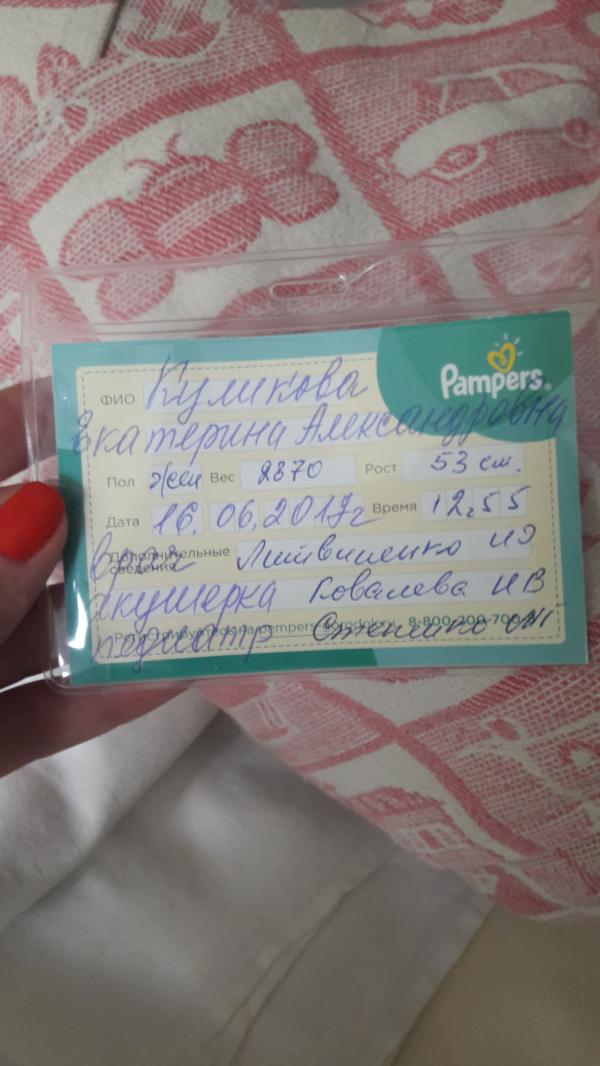 Pampers
ФИО Куликова
Екатерина Александровна
Пол жен Вес 2870 Рост 53 см.
Дата 16. 06. 2017г Время 12.55
Дополнительные сведения врач Литвиненко ИЭ
акушерка Ковалева ИВ
педиатр